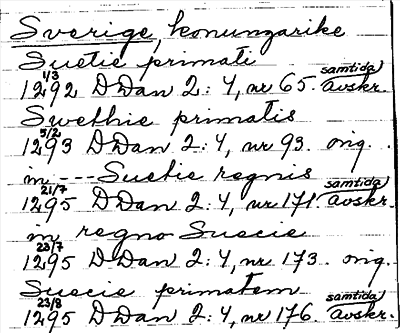 Sverige, konungarike
Suetie primati
1292 1/3 DDan 2:4, nr 65. samtida avskr.
Swethie primatis
1293 5/2 DDan 2:4, nr 93. orig.
in --- Suetie regnis
1295 21/7 DDan 2:4, nr 171 samtida avskr.
in regno Suecie
1295 23/7 DDan 2:4, nr 173. orig.
Suecie primatem
1295 23/8 DDan 2:4, nr 176. samtida avskr.